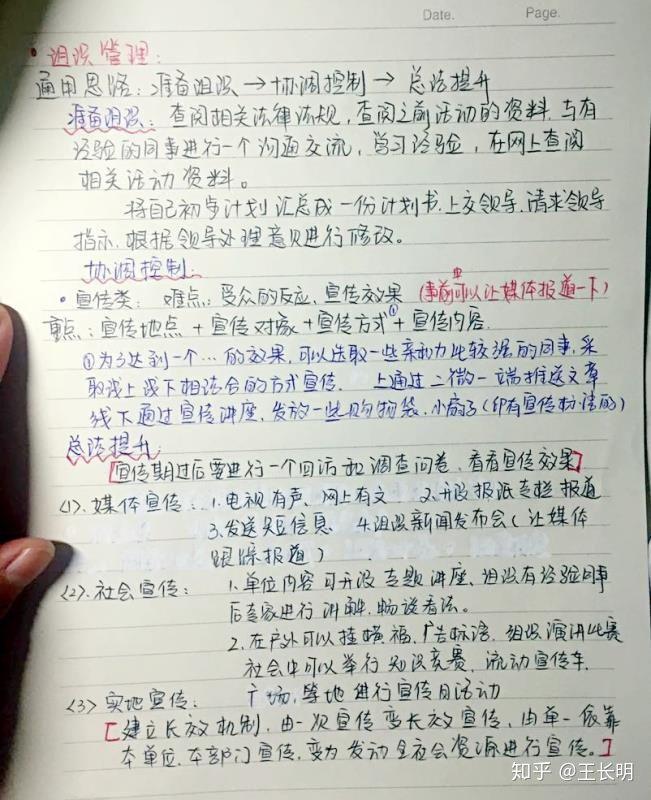 Date.    Page.
·组织管理:
通用思路:准备组织→协调控制→总结提升
准备组织:查阅相关法律法规,查阅之前活动的资料.与有
经验的同事进行一个沟通交流,学习经验,在网上查阅
相关活动资料。
将自己初步计划汇总成一份计划书.上交领导.请求领导
指示.根据领导处理意见进行修改。
协调控制:
·宣传类: 难点:受众的反应、宣传效果 (事前中可以让媒体报道一下)
重点:宣传地点+宣传对象+宣传方式①+宣传内容.
①为了达到一个…的效果,可以选取一些亲和力比较强的同事,采
取线上线下相结合的方式宣传. 上通过二微一端推送文章
线下通过宣传讲座.发放一些购物袋.小扇子(印有宣传标语的)
总结提升:
[宣传期过后要进行一个回访和调查问卷.看看宣传效果]
<1>.媒体宣传: 1.电视有声、网上有文 2.开设报纸专栏报道
3.发送短信息 4.组织新闻发布会(让媒体
跟踪报道)
<2>.社会宣传: 1.单位内容可开设专题讲座.组织有经验同事
后专家进行讲解.畅谈看法。
2.在户外可以挂横福.广告标语.组织演讲比赛
社会中可以举行知识竞赛.流动宣传车.
<3>实地宣传: 广场.等地进行宣传日活动
[建立长效机制.由一次宣传变长效宣传.由单一依靠
本单位.本部门宣传.变为发动全社会资源进行宣传。]
知乎 @王长明